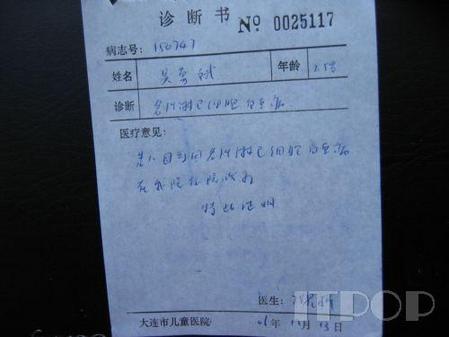 诊断书 Nº 0025117
病志号: 150747
姓名 吴 年龄
诊断 急性淋巴细胞白血病
医疗意见:
急性淋巴细胞白血病
在我院住院
特此证明
医生:
大连市儿童医院 年 月 13日
ITPOP